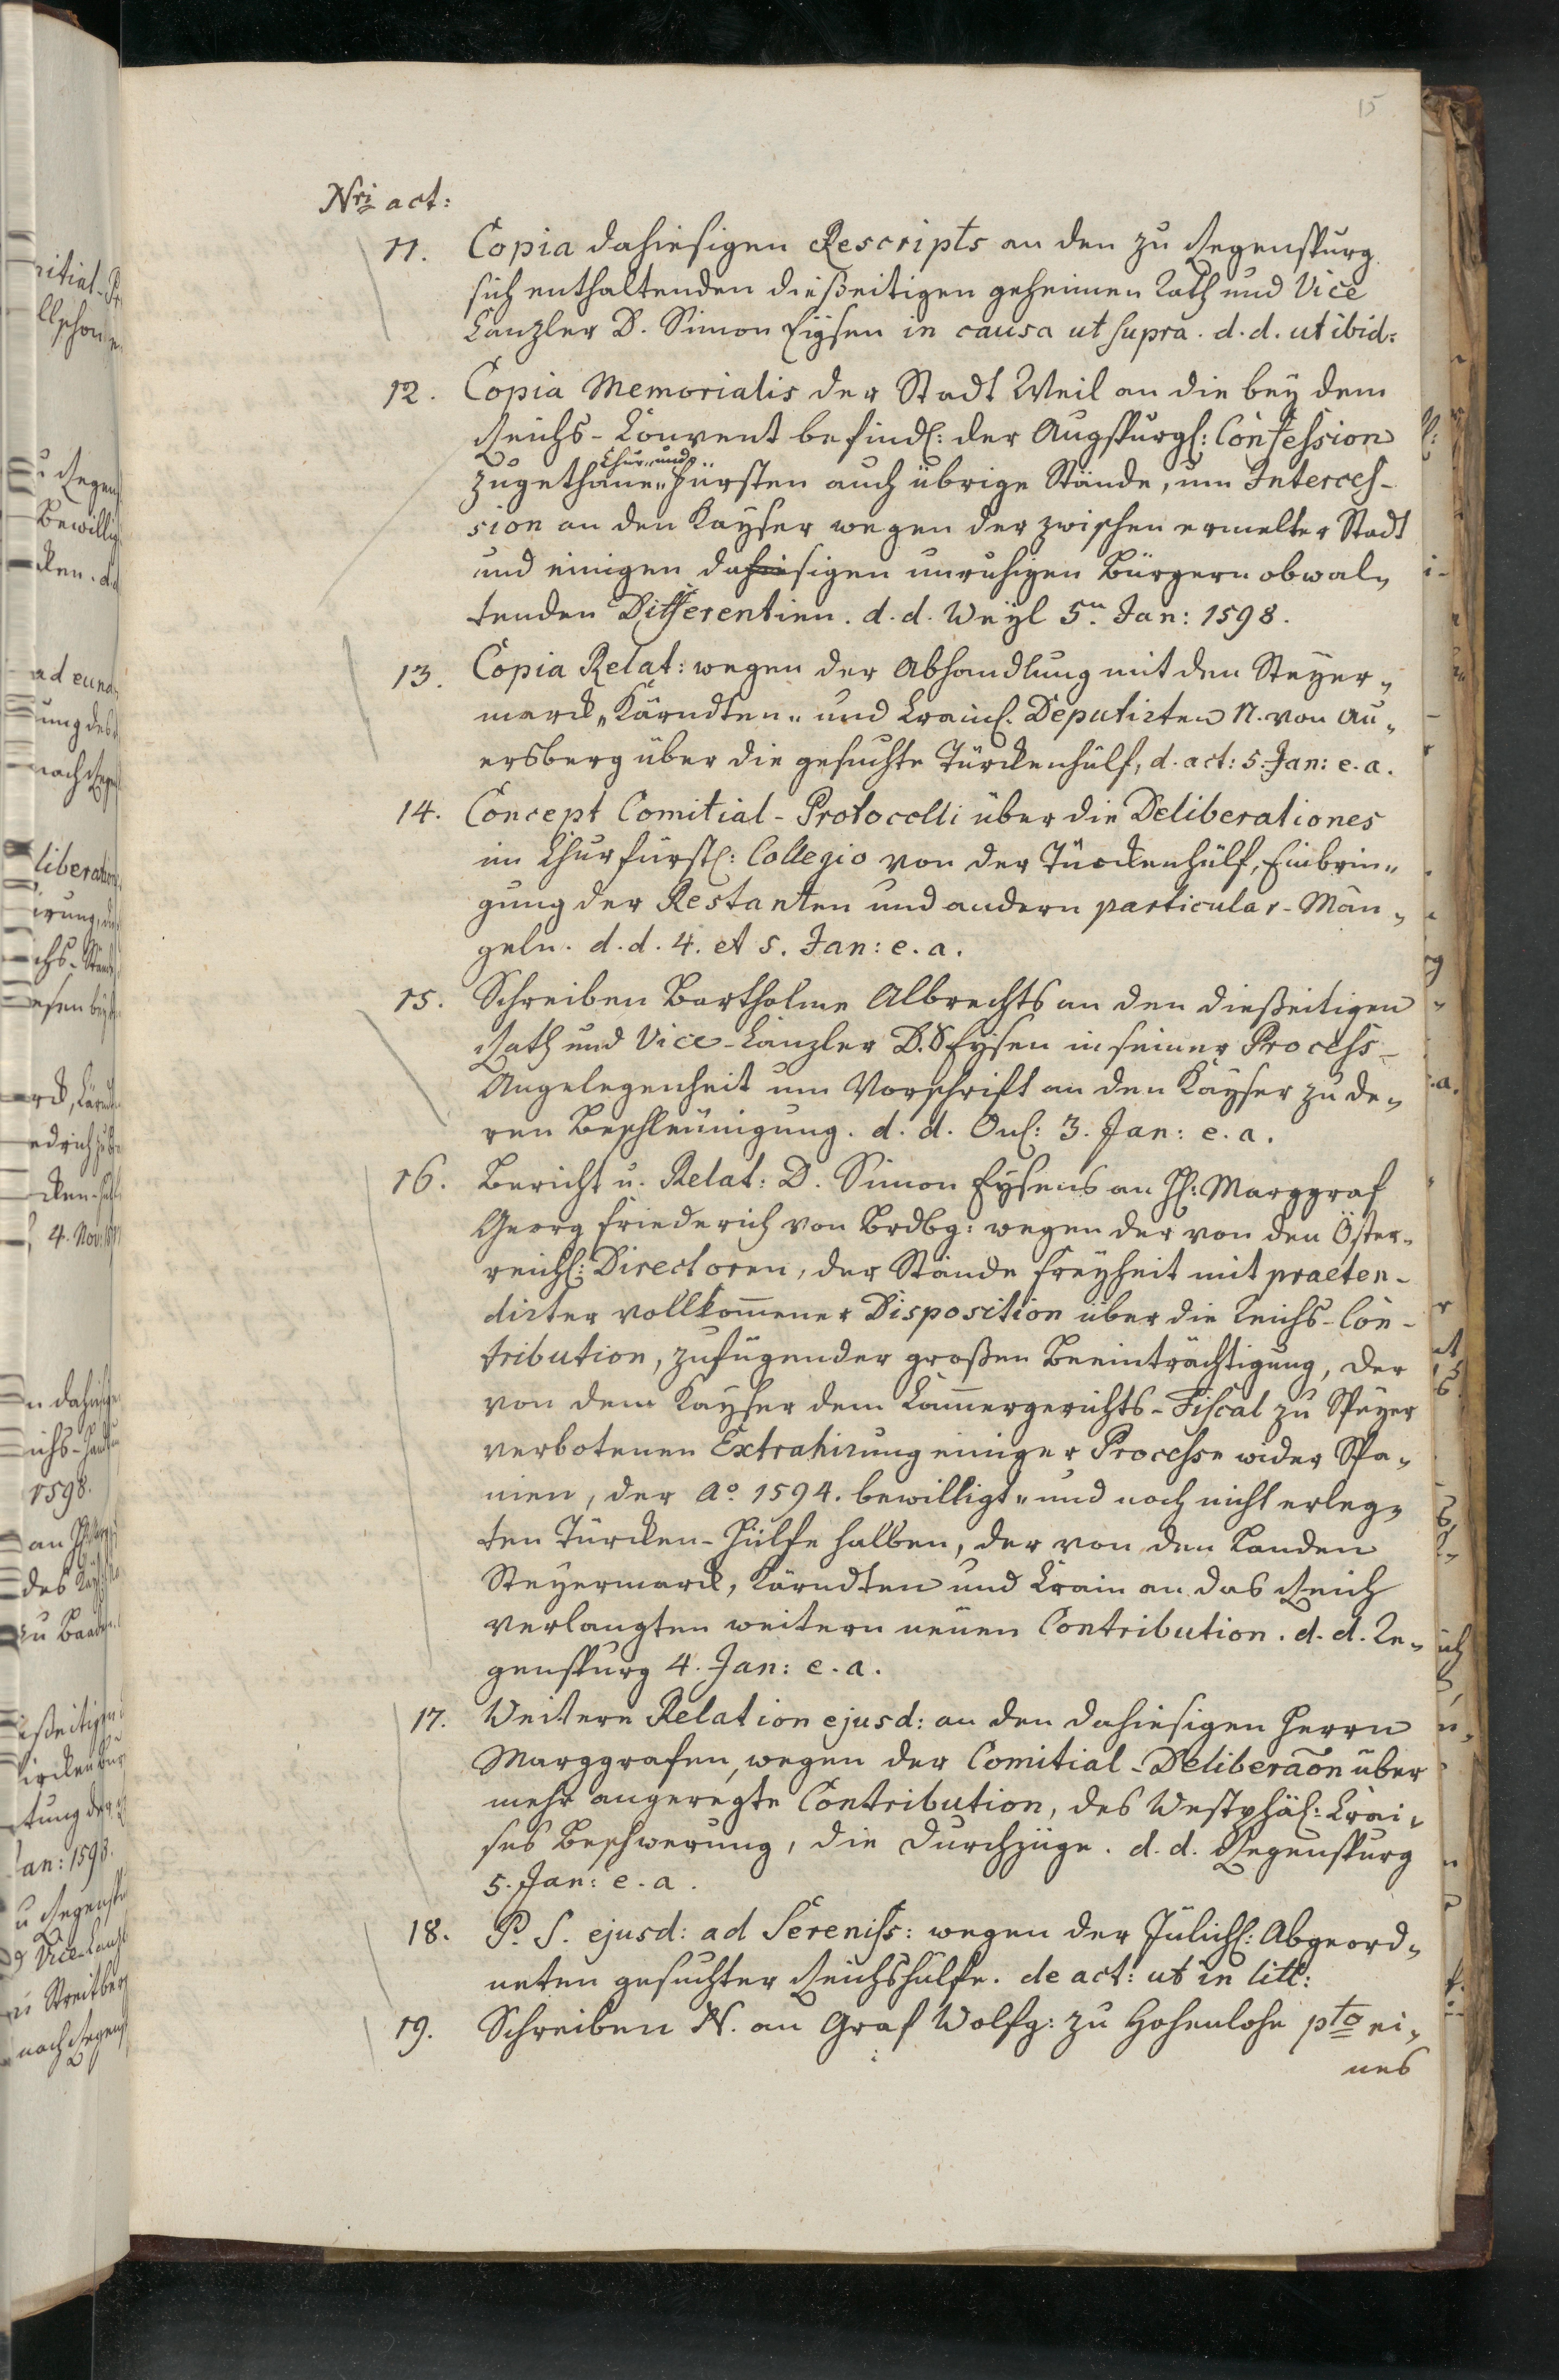 15
Nri act:
11. Copia dahiesigen Rescripts an den zu Regenspurg
sich enthaltenden dießeitigen geheimen Rath und Vice
Canzler D. Simon Eysen in causa ut supra. d. d. ut ibid:
12. Copia Memorialis der Stadt Weil an die bey dem
Reichs-Convent befindl: der Augspurgl: Confession
Chur- und
zugethane Fürsten auch übrige Stände, um Interces-
sion an den Kayser wegen der zwischen ermelter Stadt
und einigen dahiesigen unruhigen Bürgern obwal-
tenden Differentien. d. d. Weyl 5n Jan: 1598.
13. Copia Relat: wegen der Abhandlung mit den Steyer-
marck, Kärndten- und Crainl. Deputirten N. von Au-
ersberg über die gesuchte Türckenhülf, d. act: 5. Jan: e. a.
14. Concept Comitial-Protocolli über die Deliberationes
im Churfürstl: Collegio von der Türckenhülf, Einbrin-
gung der Restanten und andern particular-Män-
geln. d. d. 4. et 5. Jan: e. a.
15. Schreiben Bartholme Albrechts an den dießeitigen
Rath und Vice-Canzler D. S Eysen in seiner Process-
Angelegenheit um Vorschrift an den Kayser zu de-
ren Beschleunigung. d. d. Onl: 3. Jan: e. a.
16. Bericht u. Relat: D. Simon Eysens an H: Marggraf
Georg Friederich von Brdbg: wegen der von den Öster-
reichl: Directoren, der Stände Freyheit mit praeten-
dirter vollkommener Disposition über die Reichs-Con-
tribution, zufügender großen Beeinträchtigung, der
von dem Kayser dem Cammergerichts-Fiscal zu Speyer
verbotenen Extrahirung einiger Processe wider Spa-
nien, der Ao. 1594. bewilligt- und noch nicht erleg-
ten Türcken-Hülfe halben, der von den Landen
Steyermarck, Kärndten und Crain an das Reich
verlangten weitern neuen Contribution. d. d. Re-
genspurg 4. Jan: e. a.
17. Weitere Relation ejusd: an den dahiesigen Herrn
Marggrafen, wegen der Comitial-Deliberaõn über
mehr angeregte Contribution, des Westphäl: Crai-
ses Beschwerung, die Durchzüge. d. d. Regenspurg
5. Jan: e. a.
18. P. S. ejusd: ad Sereniss: wegen der Jülichl: Abgeord-
neten gesuchter Reichshülfe. de act: ut in litt:
19. Schreiben N. an Graf Wolfg: zu Hohenlohe pto ei-
nes